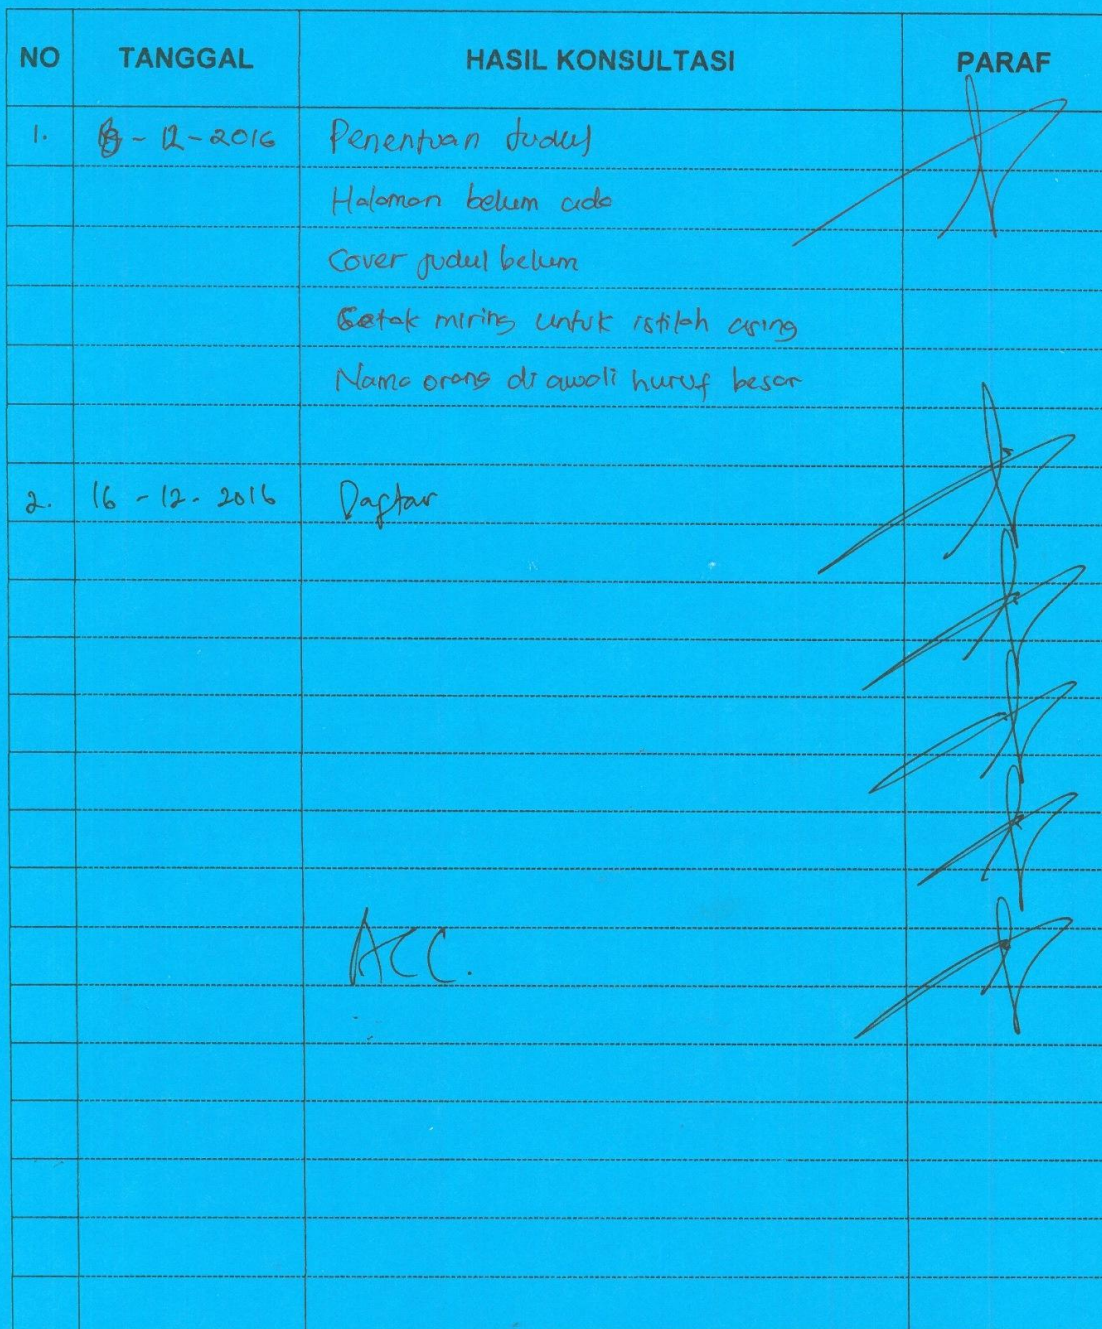 NO TANGGAL HASIL KONSULTASI PARAF
1. -12-2016 Penentuan Judul
Halaman belum ada
Cover judul belum
Cetak miring untuk istilah asing
Nama orang di awali huruf besar
2. 16-12-2016 Daftar
ACC.